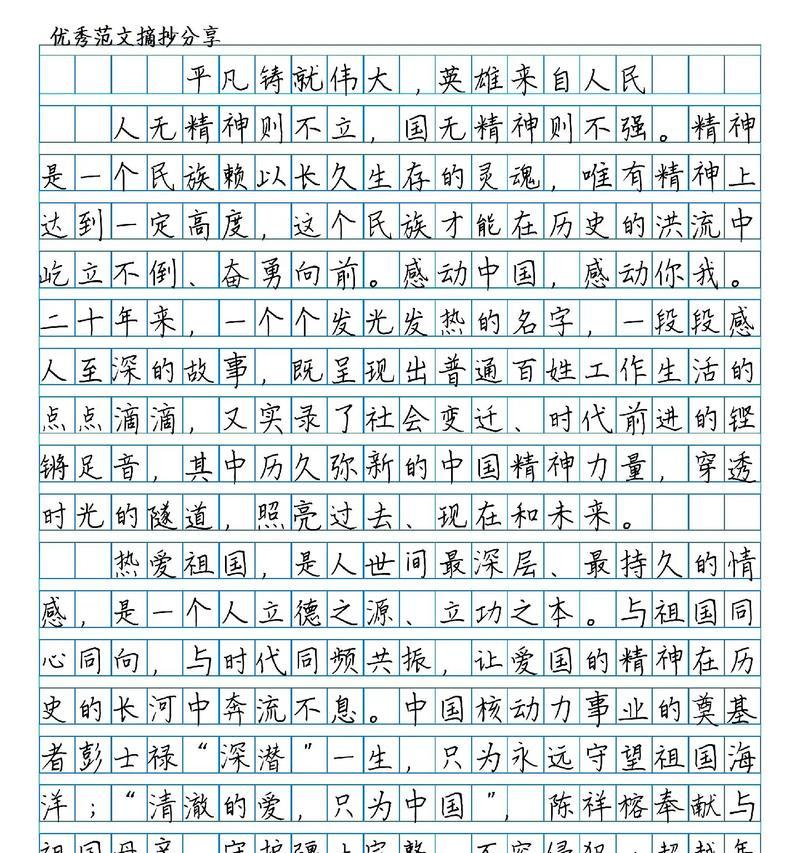 优秀范文摘抄分享
平凡铸就伟大，英雄来自人民
人无精神则不立，国无精神则不强。精神
是一个民族赖以长久生存的灵魂，唯有精神上
达到一定高度，这个民族才能在历史的洪流中
屹立不倒、奋勇向前。感动中国，感动你我。
二十年来，一个个发光发热的名字，一段段感
人至深的故事，既呈现出普通百姓工作生活的
点点滴滴，又实录了社会变迁、时代前进的铿
锵足音，其中历久弥新的中国精神力量，穿透
时光的隧道，照亮过去、现在和未来。
热爱祖国，是人世间最深层、最持久的情
感，是一个人立德之源、立功之本。与祖国同
心同向，与时代同频共振，让爱国的精神在历
史的长河中奔流不息。中国核动力事业的奠基
者彭士禄“深潜”一生，只为永远守望祖国海
洋；“清澈的爱，只为中国”，陈祥榕奉献与
祖国母亲，守护疆土完整，不容侵犯；超越年